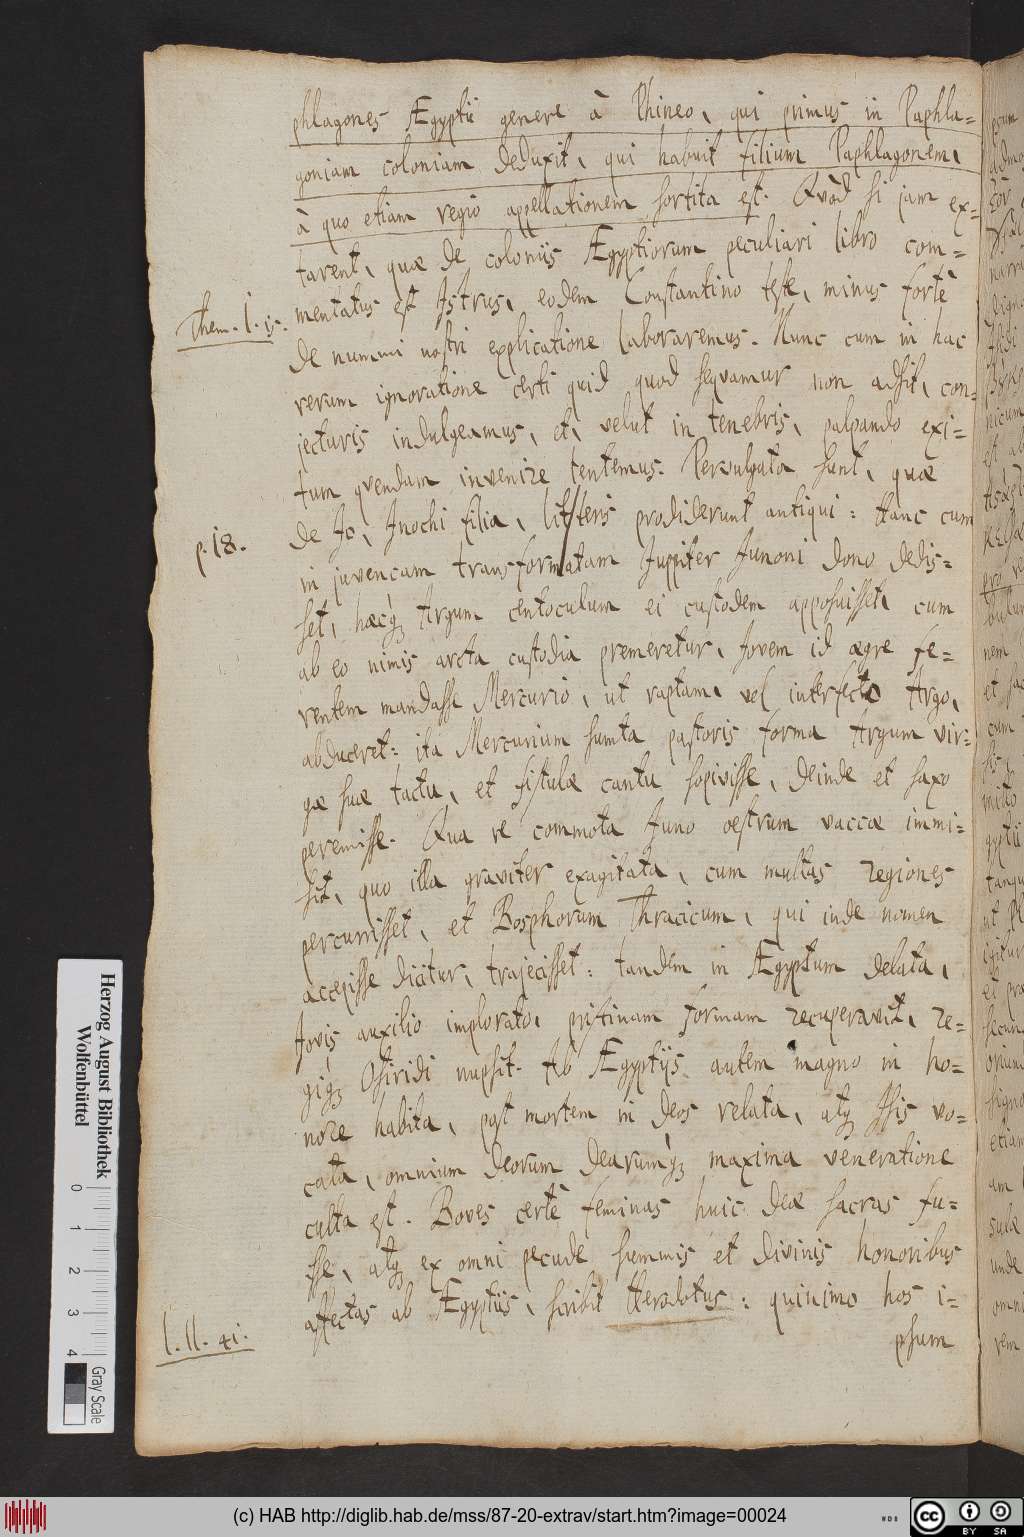 phlagones Ægyptii genere à Phineo, qui primus in Paphla=
goniam coloniam deduxit, qui habuit filium Paphlagonem,
à quo etiam regio appellationem sortita est. Quòd si jam ex=
tarent, quæ de coloniis Ægyptiorum peculiari libro com=
Them. I. 15.
mentatus est Istrus, eodem Constantino teste, minus fortè
de nummi nostri explicatione laboraremus. Nunc cum in hac
rerum ignoratione certi quid quod sequamur non adsit, con=
jecturis indulgeamus, et, velut in tenebris, palpando exi=
tum quendam invenire tentemus. Pervulgata sunt, quæ
p. 18.
de Io, Inochi filia, litteris prodiderunt antiqui: Hanc cum
in juvencam transformatam Juppiter Junoni dono dedis=
set, hæcq; Argum centoculum ei custodem apposuisset, cum
ab eo nimis arcta custodia premeretur, Jovem id ægre fe=
rentem mandasse Mercurio, ut raptam, vel interfecto Argo,
abduceret: ita Mercurium sumta pastoris forma Argum vir=
gæ suæ tactu, et fistulæ cantu sopivisse, deinde et saxo
peremisse. Qua re commota Juno oestrum vaccæ immi=
sit, quo illa graviter exagitata, cum multas regiones
percurrisset, et Bosphorum Thracicum, qui inde nomen
accepisse dicitur, trajecisset: tandem in Ægyptum delata,
Jovis auxilio implorato, pristinam formam recuperavit, re=
giq; Osiridi nupsit. Ab Ægyptijs autem magno in ho=
nore habita, post mortem in deos relata, atq; Isis vo=
cata, omnium deorum dearumq; maxima veneratione
culta est. Boves certè feminas huic deæ sacras fu=
sse, atq; ex omni pecude summis et divinis honoribus
l. II. 41.
affectas ab Ægyptiis, scribit Herodotus: quinimo hos i=
psum
Herzog August Bibliothek
Wolfenbüttel
0 1 2 3 4
Gray Scale
(c) HAB http://diglib.hab.de/mss/87-20-extrav/start.htm?image=00024
cc BY SA